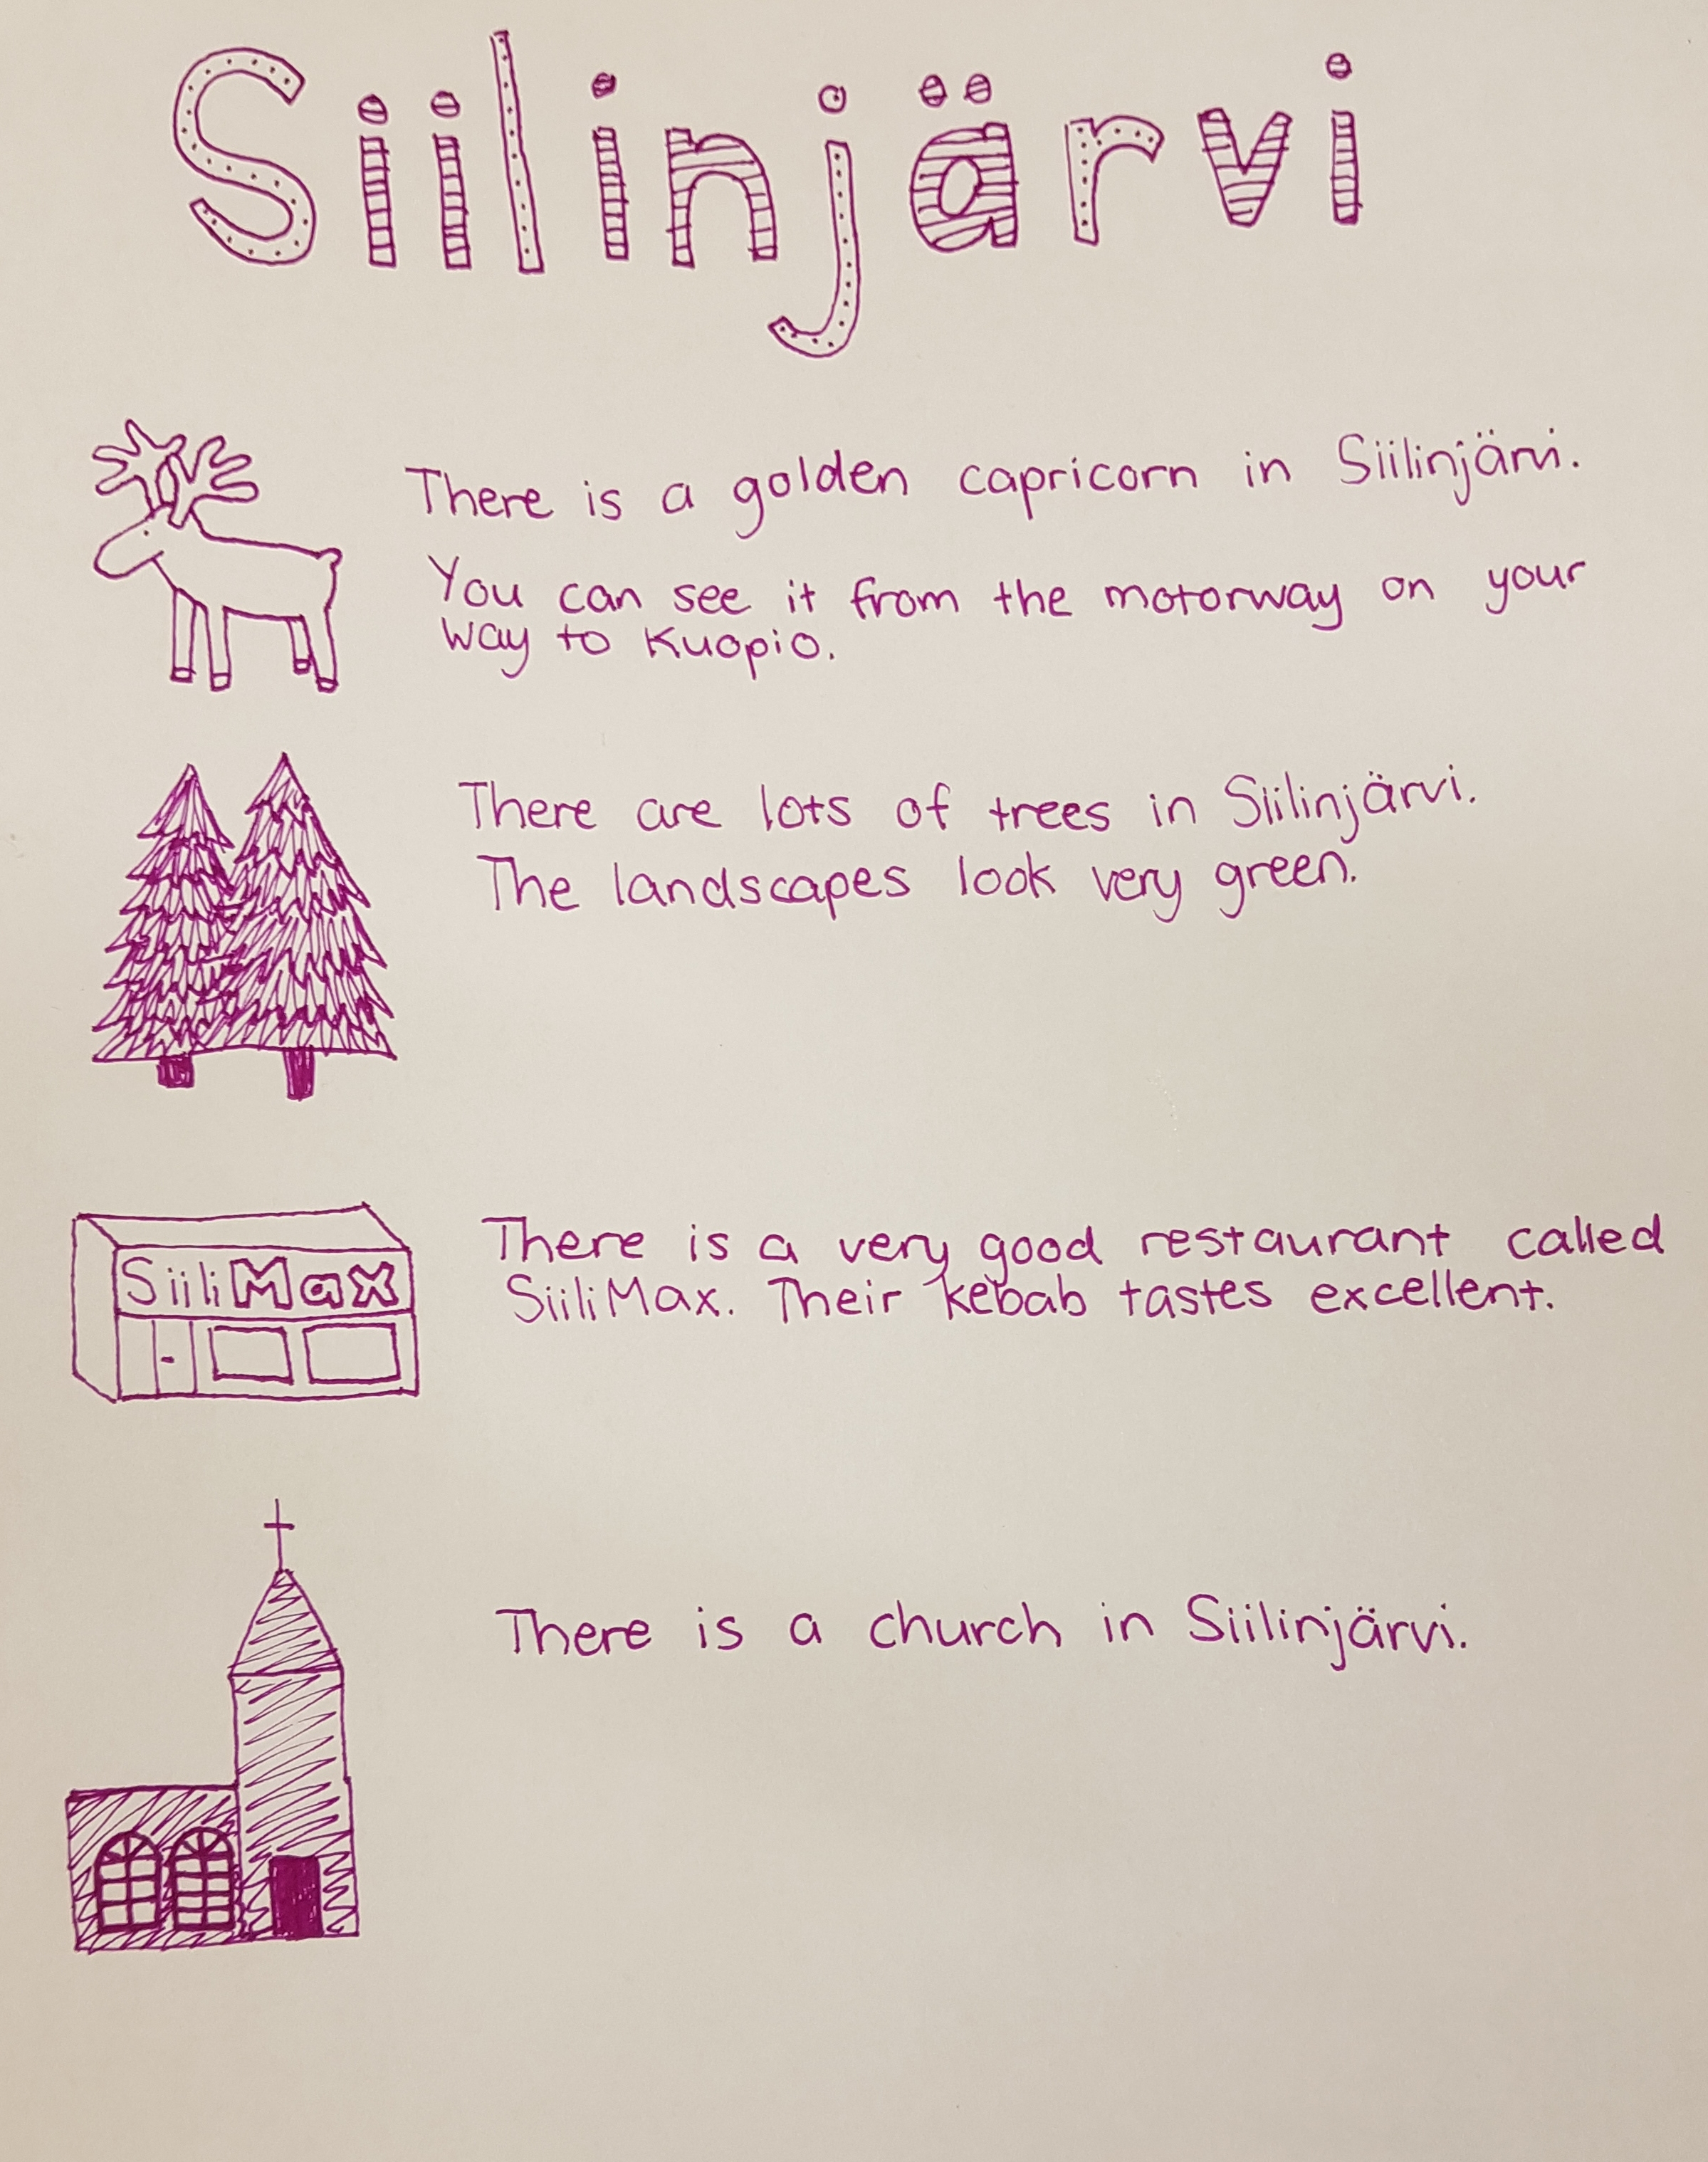 Siilinjärvi
There is a golden capricorn in Siilinjärvi.
You can see it from the motorway on your
way to Kuopio.
There are lots of trees in Siilinjärvi.
The landscapes look very green.
SiiliMax
There is a very good restaurant called
SiiliMax. Their kebab tastes excellent.
There is a church in Siilinjärvi.